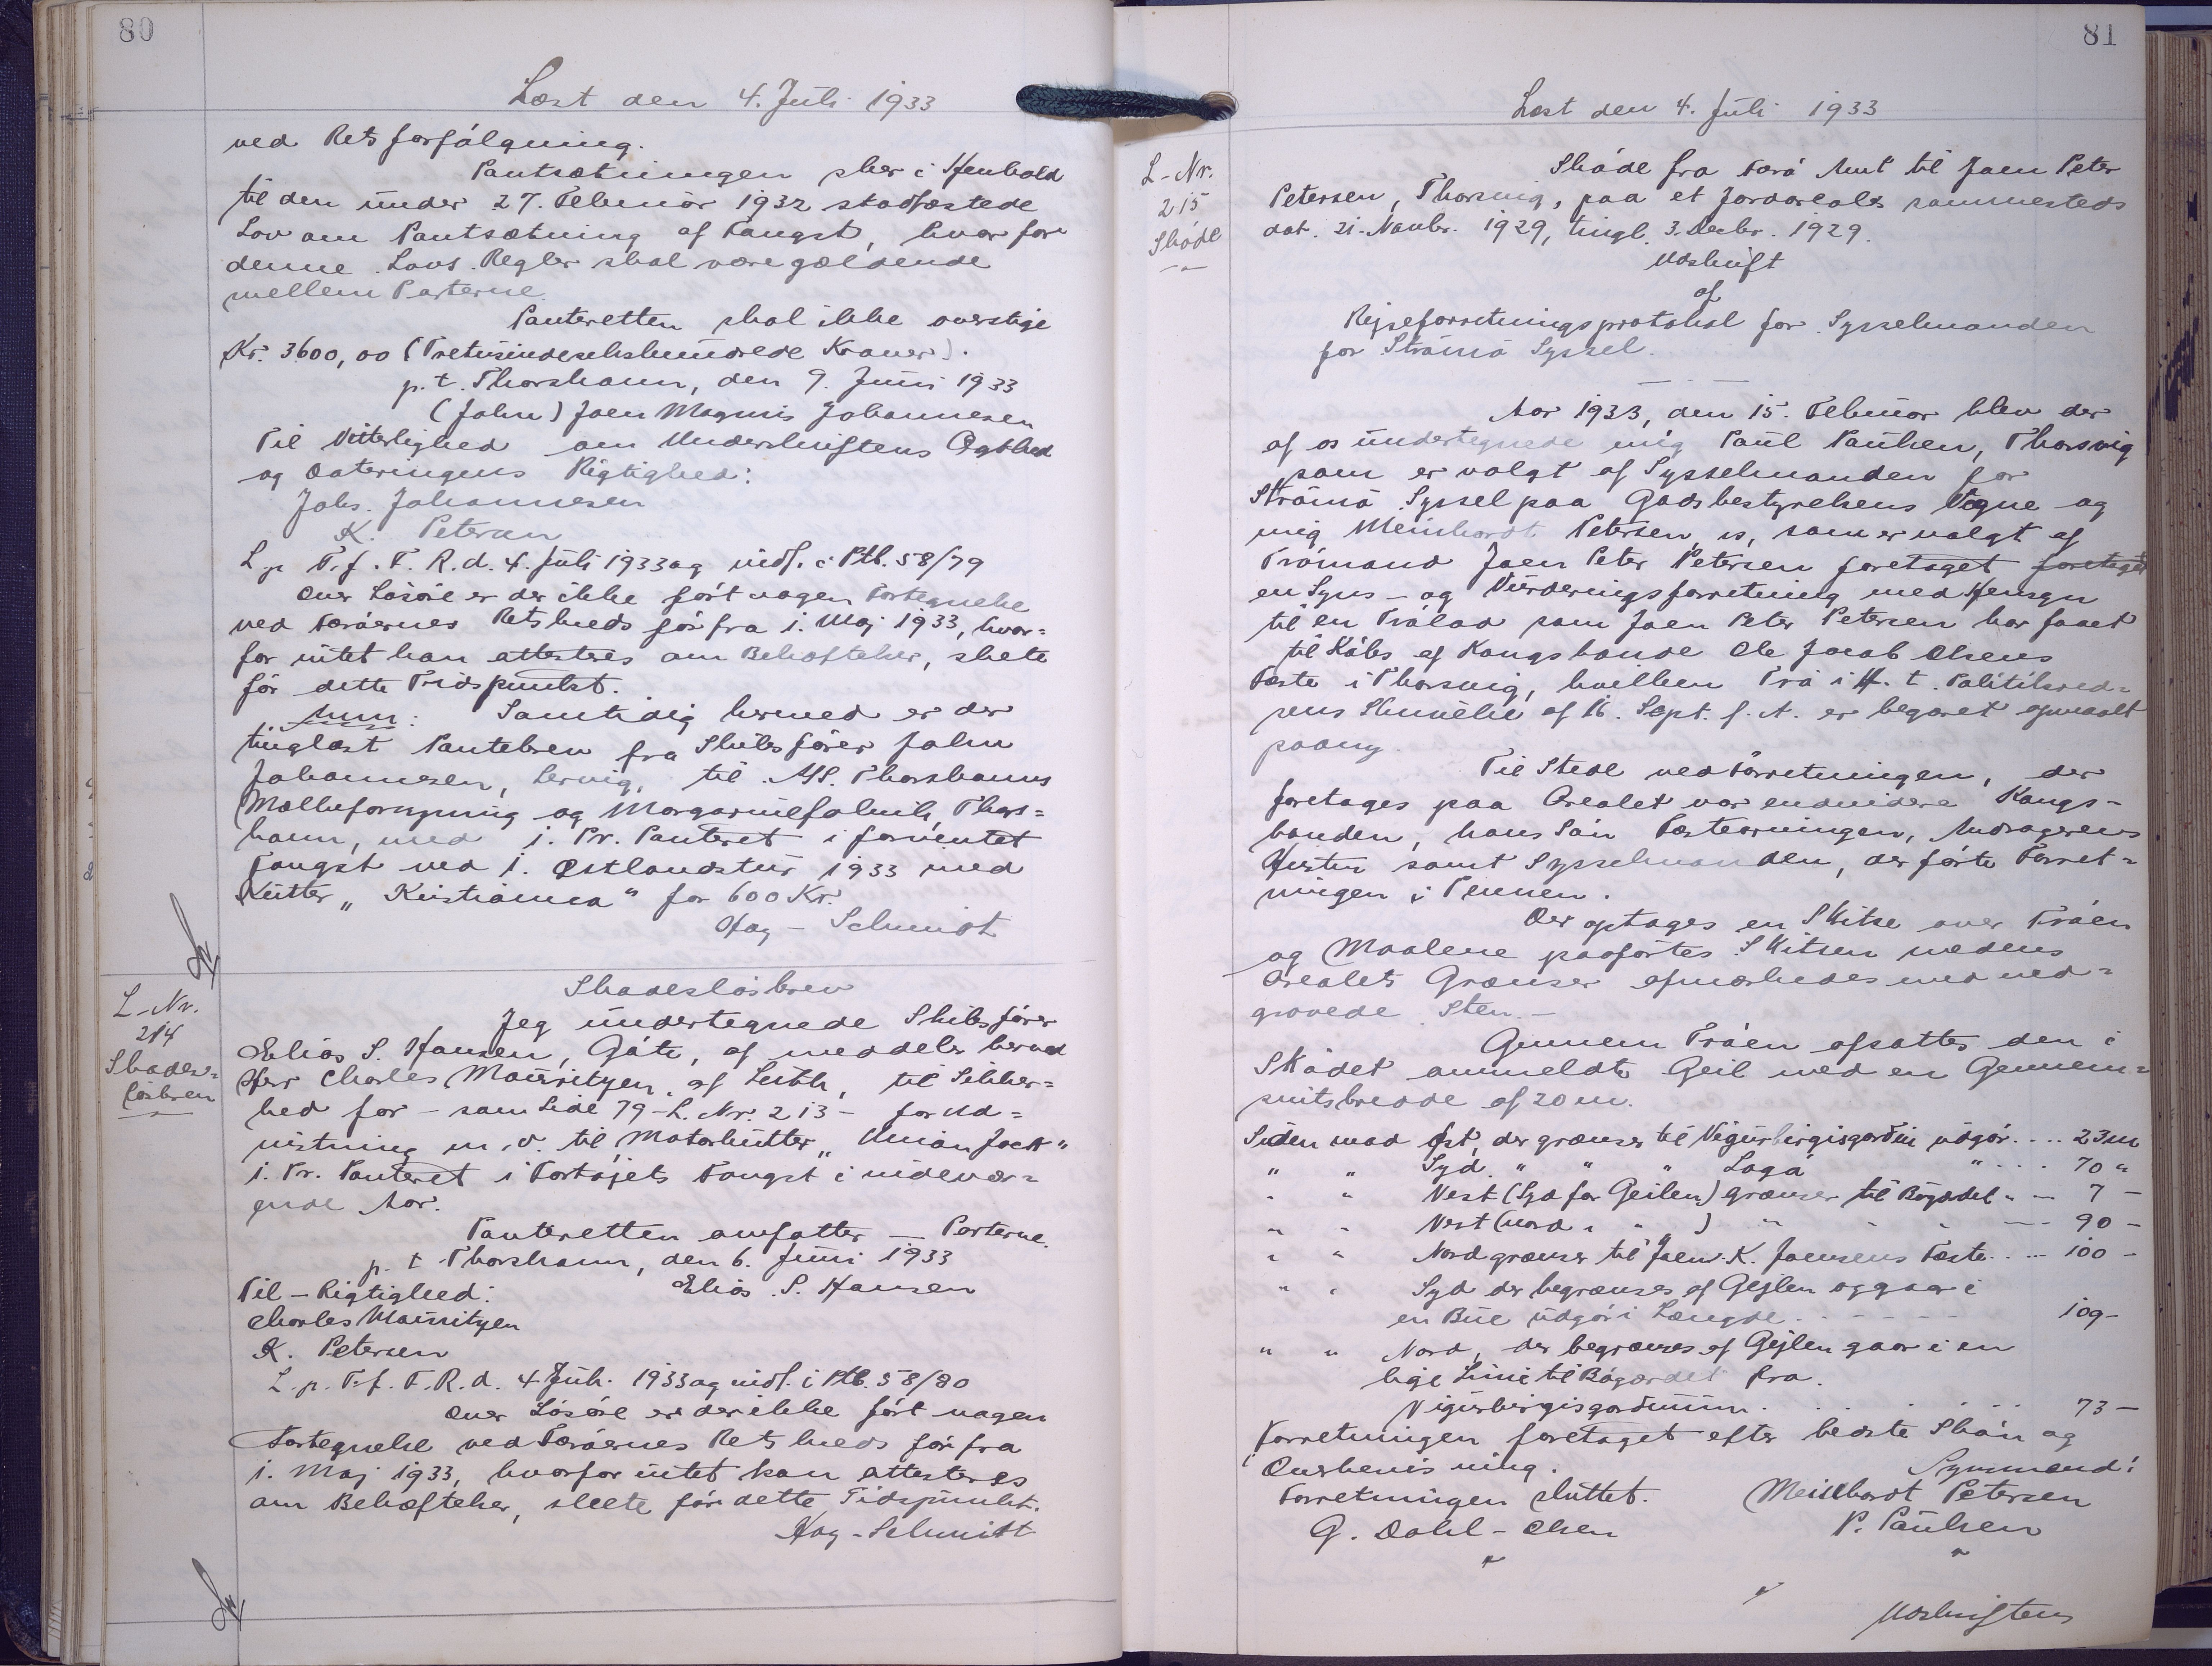 80
Læst den 4. Juli 1933
ved Retsforfølgning.
Pantsætningen sker i Henhold
til den under 27. Februar 1932 stadfæstede
Lov om Pantsætning af Fangst, hvorfor
denne Lovs Regler skal være gældende
mellem Parterne.
Panteretten skal ikke overstige
Kr. 3600,00 (Tretusindesekshundrede Kroner).
p.t. Thorshavn, den 9. Juni 1933
(John) Joen Magnus Johannesen
Til Vitterlighed om Underskriftens Ægthed
og Dateringens Rigtighed:
Johs. Johannesen
K. Petersen
L. p T. f. F. R. d. 4. Juli 1933 og indf. i Ptb. 58/79
Over Løsøre er der ikke ført nogen Fortegnelse
ved Færøernes Retskreds før fra 1. Maj 1933, hvor=
for intet kan attesteres om Behæftelser, skete
før dette Tidspunkt.
Anm: Samtidig hermed er der
tinglæst Pantebrev fra Skibsfører John
Johannesen, Lervig, til A/S. Thorshavns
Mælkeforsyning og Margarinefabrik, Thors=
havn, med 1. Pr. Panteret i forventet
Fangst ved 1. Østlandstur 1933 med
Kutter „Kristianna" for 600 Kr.
Høg-Schmidt
L-Nr.
214
Skades=
løsbrev
Skadesløsbrev
Jeg undertegnede Skibsfører
Elias S. Hansen, Gøte, af meddeler herved
Herr Charles Mouritzen, af Leith, til Sikker=
hed for - som Side 79 - L. Nr. 213 - for Ud=
rustning m.v. til Motorkutter „Union Jack"
1. Pr. Panteret i Fartøjets Fangst i indevær=
ende Aar.
Panteretten omfatter — Parterne.
p. t Thorshavn, den 6. Juni 1933
Til - Rigtighed: Elias S. Hansen
Charles Mouritzen
K. Petersen
L. p. T. f. F. R. d. 4 Juli 1933 og indf. i Ptb. 58/80
Over Løsøre er der ikke ført nogen
Fortegnelse ved Færøernes Retskreds før fra
1. Maj 1933, hvorfor intet kan attesteres
om Behæftelser, skete før dette Tidspunkt.
Høg-Schmidt
81
Læst den 4. Juli 1933
L-Nr.
215
Skøde
Skøde fra Færø Amt til Joen Peter
Petersen, Thorsvig, paa et Jordareals sammesteds
dat. 21. Novbr. 1929, tingl. 3. Decbr. 1929.
Udskrift
af
Rejseforretningsprotokol for Sysselmanden
for Strømø Syssel.
Aar 1933, den 15. Februar blev der
af os undertegnede mig Paul Paulsen, Thorsvig
som er valgt af Sysselmanden for
Strømø Syssel paa Godsbestyrelsens Vegne og
mig Meinhardt Petersen, is, som er valgt af
Trømand Joen Peter Petersen foretaget foretaget
en Syns- og Vurderingsforretning med Hensyn
til en Trølod som Joen Peter Petersen har faaet
til Købs af Kongsbonde Ole Jacob Olsens
Fæste i Thorsvig, hvilken Trø i H. t. Politikred=
sens Skrivelse af 16. Sept. f. A. er begæret opmaalt
paany.
Til Stede ved Forretningen, der
foretages paa Arealet var endvidere Kongs-
bonden, hans Søn Fæstearvingen, Andragerens
Hustru samt Sysselmanden, der førte Forret=
ningen i Pennen.
Der optages en Skitse over Trøen
og Maalene paaførtes Skitsen medens
Arealets Grænser afmærkedes med ned=
gravede Sten. -
Gennem Trøen afsattes den i
Skødet anmeldte Geil med en Gennem=
snitsbredde af 20 m.
Siden mod Øst, der grænser til Vigurbirgisgardin udgør.... 23m
" " Syd " " " Lagá " ... 70 "
" " Vest (Syd for Geilen) grænser til Bøgærdet " — 7 —
" " Vest (Nord " " ) " " " — 90 —
" " Nord grænser til Joen K. Joensens Fæste.... 100 —
" " Syd der begrænses af Gejlen og gaar i
en Bue udgør i Længde. - - - - - 109-
" " Nord, der begrænses af Gejlen gaar i en
lige Linie til Bøgærdet fra.
Vigurbirgisgardinum. . . . . . 73 —
Forretningen foretaget efter bedste Skøn og
Overbevisning. Synsmænd:
Forretningen sluttet. Meinhardt Petersen
G. Dahl-Olsen P. Paulsen
Udskriftens